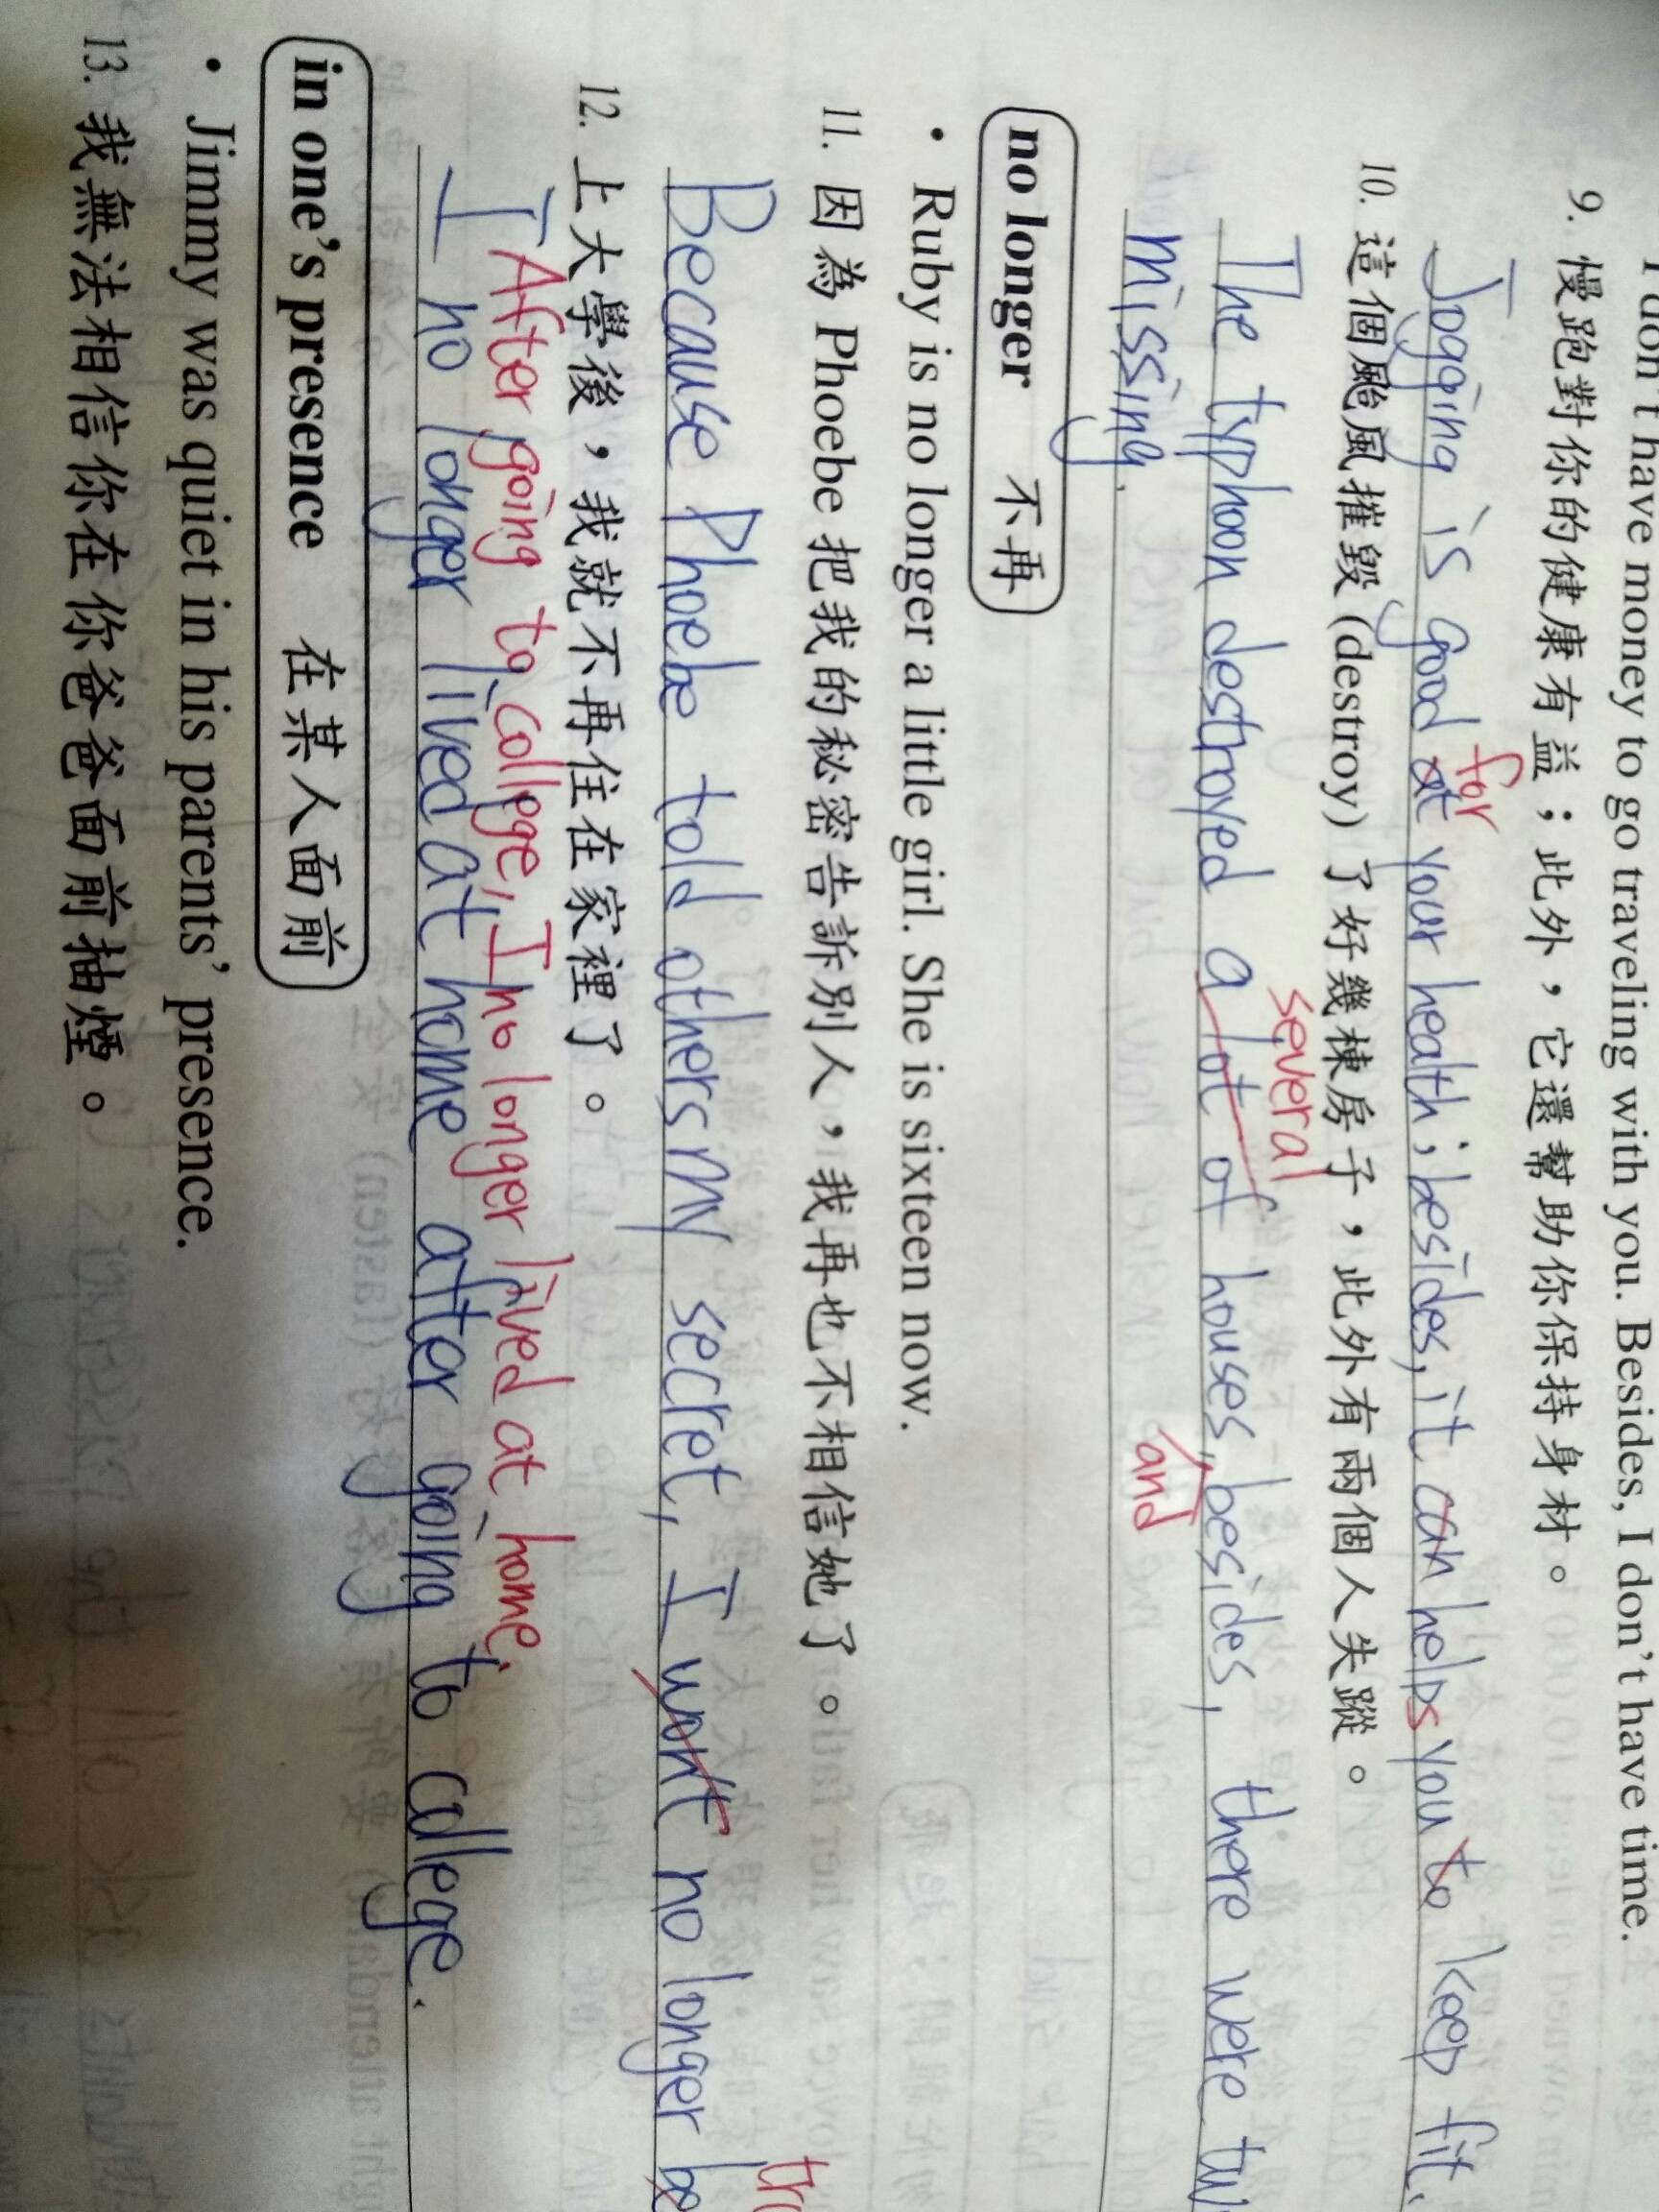 I don't have money to go traveling with you. Besides, I don't have time.
9. 慢跑對你的健康有益；此外，它還幫助你保持身材。
for
Jogging is good at your health; besides, it can helps you to keep fit.
10. 這個颱風摧毀 (destroy) 了好幾棟房子，此外有兩個人失蹤。
several
The typhoon destroyed a lot of houses, besides, there were
and
missing.
no longer 不再
• Ruby is no longer a little girl. She is sixteen now.
11. 因為 Phoebe 把我的秘密告訴別人，我再也不相信她了。
Because Phoebe told others my secret, I won't no longer
12. 上大學後，我就不再住在家裡了。
After going to college, I no longer lived at home.
I no longer lived at home after going to college.
in one's presence 在某人面前
• Jimmy was quiet in his parents' presence.
13. 我無法相信你在你爸爸面前抽煙。